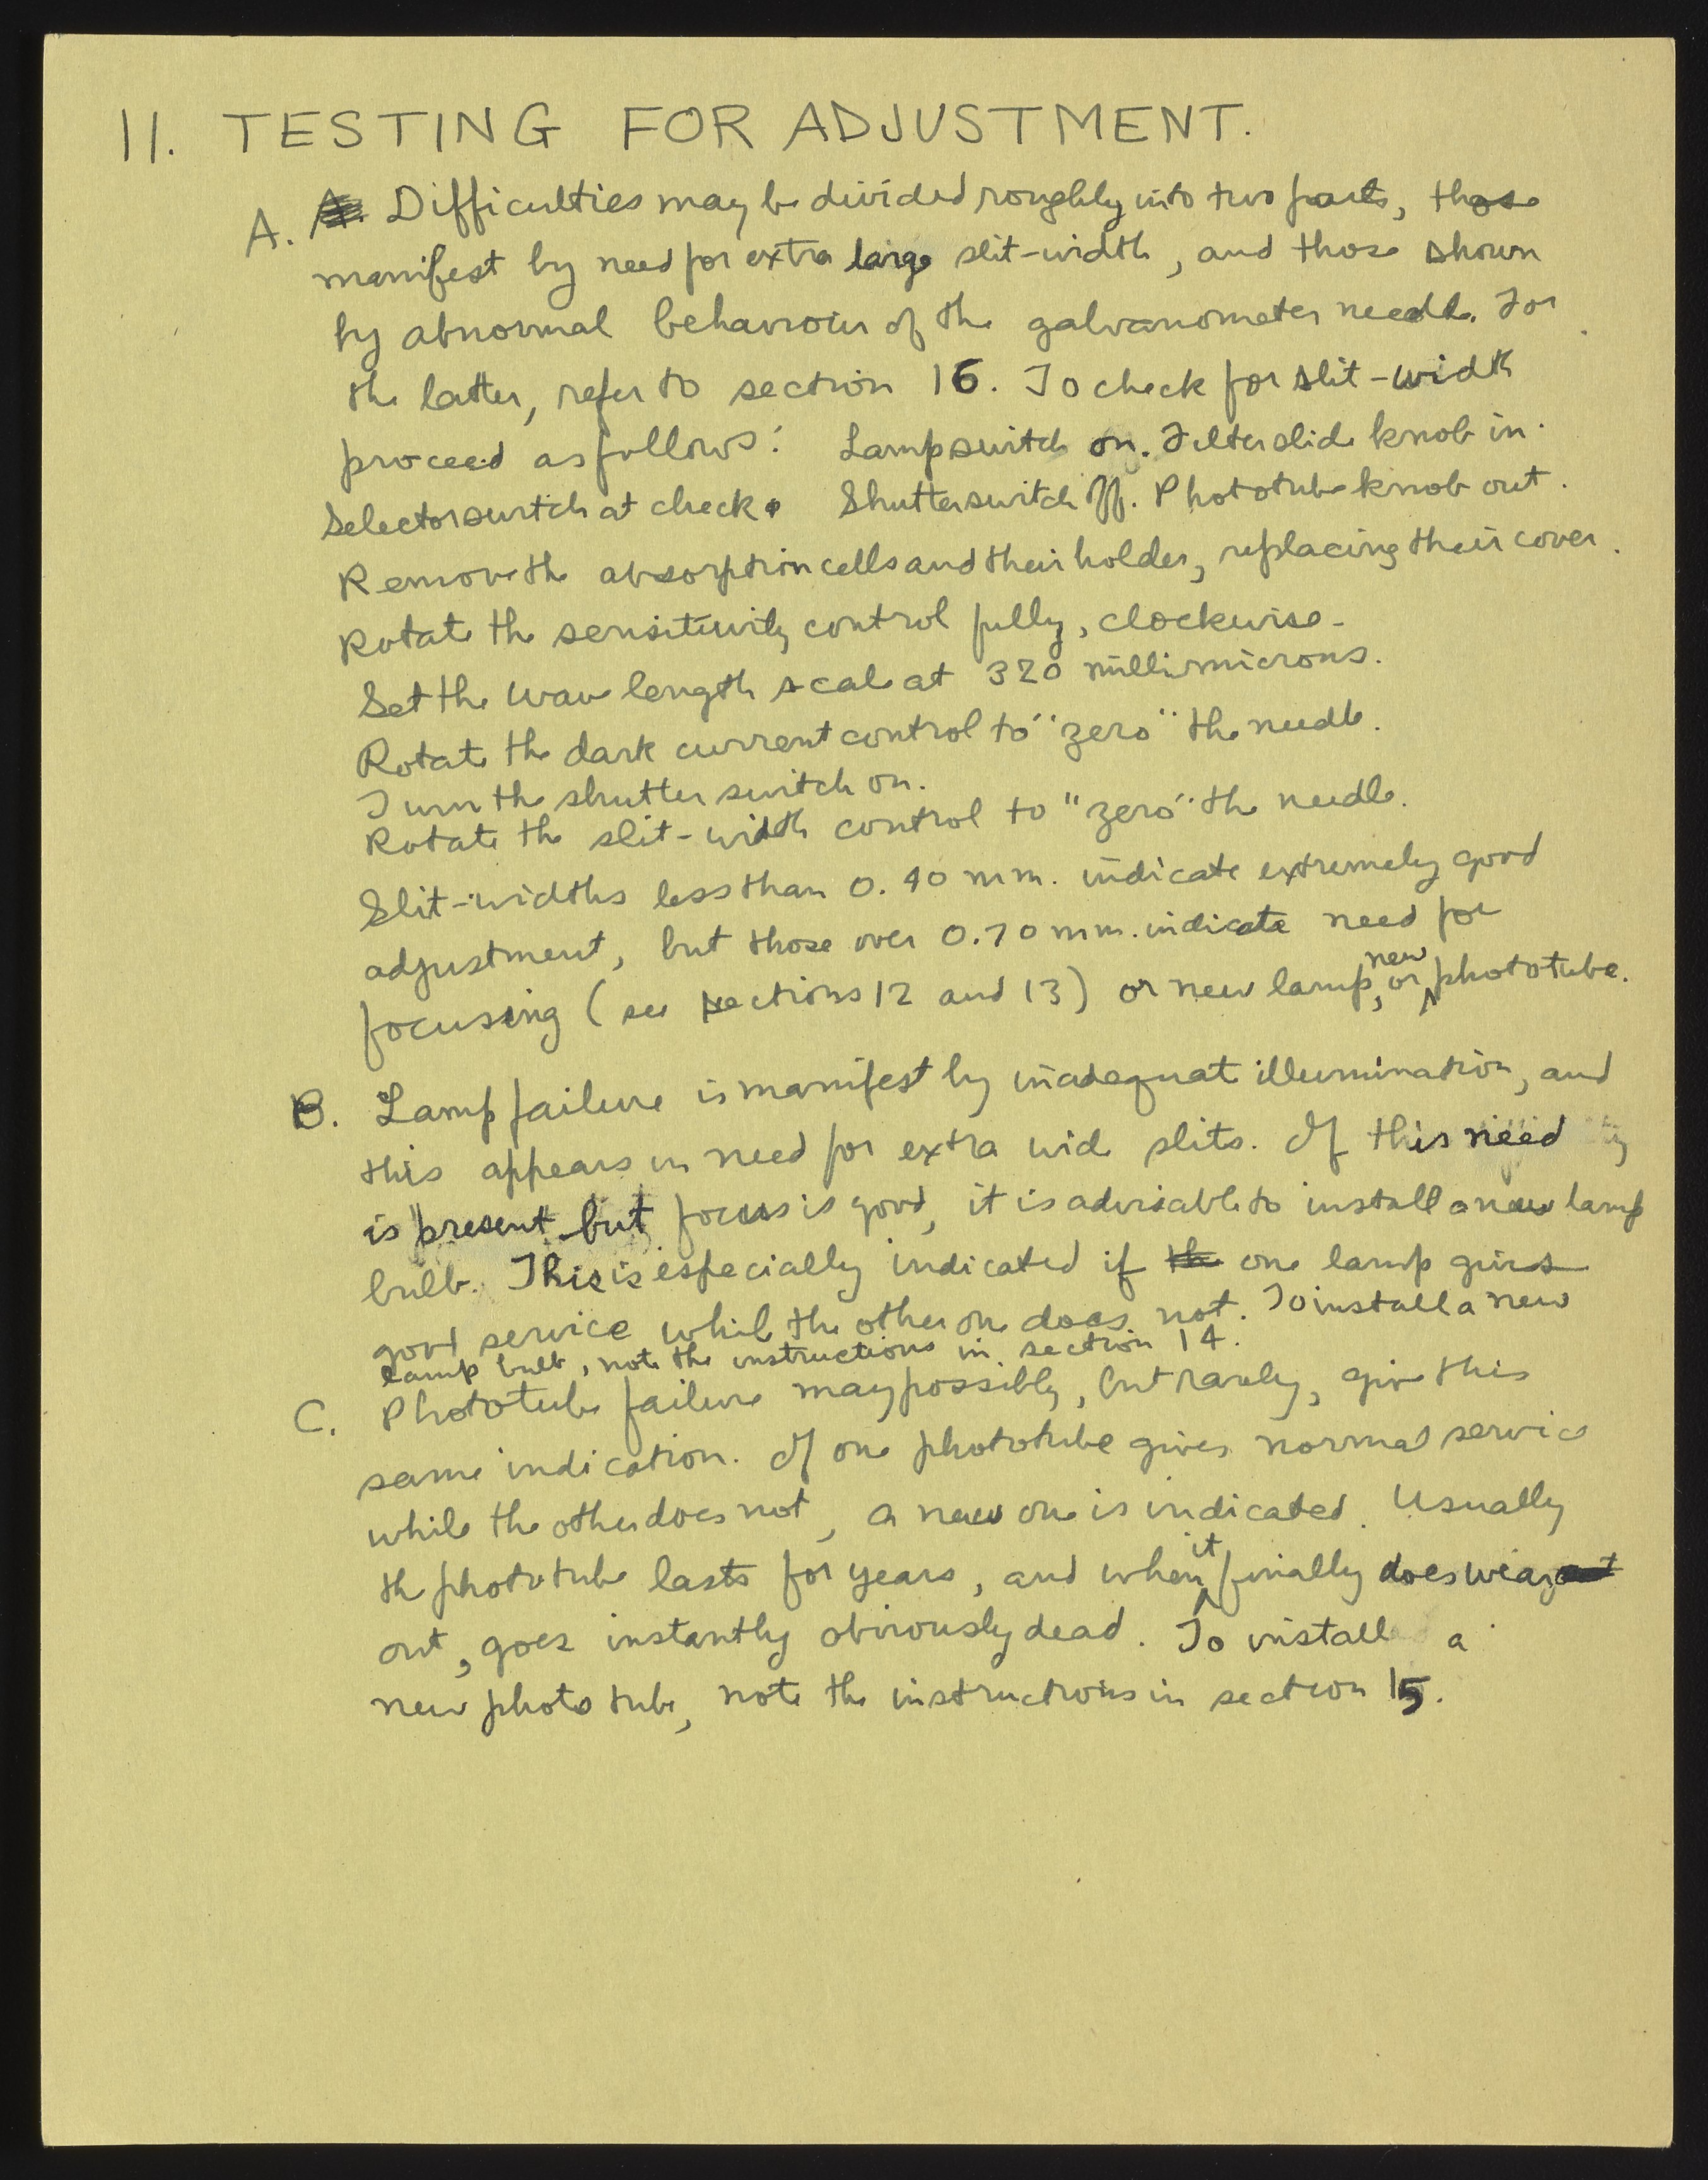 11. TESTING FOR ADJUSTMENT.
A. Difficulties may be divided roughly into two parts, those
manifest by need for extra large slit-width, and those shown
by abnormal behaviour of the galvanometer needle. For
the latter, refer to section 16. To check for slit-width
proceed as follows: Lamp switch on. Filter slide knob in.
Selector switch at check. Shutter switch off. Phototube knob out.
Remove the absorption cells and their holder, replacing their cover.
Rotate the sensitivity control fully, clockwise.
Set the wave length scale at 320 millimicrons.
Rotate the dark current control to "zero" the needle.
Turn the shutter switch on.
Rotate the slit-width control to "zero" the needle.
Slit-widths less than 0.40 mm. indicate extremely good
adjustment, but those over 0.70 mm. indicate need for
focussing (see sections 12 and 13) or new lamp, or new phototube.
B. Lamp failure is manifest by inadequate illumination, and
this appears in need for extra wide slits. If this need
is present but focus is good, it is advisable to install a new lamp
bulb. This is especially indicated if the one lamp gives
good service while the other one does not. To install a new
lamp bulb, note the instructions in section 14.
C. Phototube failure may possibly, but rarely, give this
same indication. If one phototube gives normal service
while the other does not, a new one is indicated. Usually
the phototube lasts for years, and when it finally does wear
out, goes instantly obviously dead. To install a
new phototube, note the instructions in section 15.